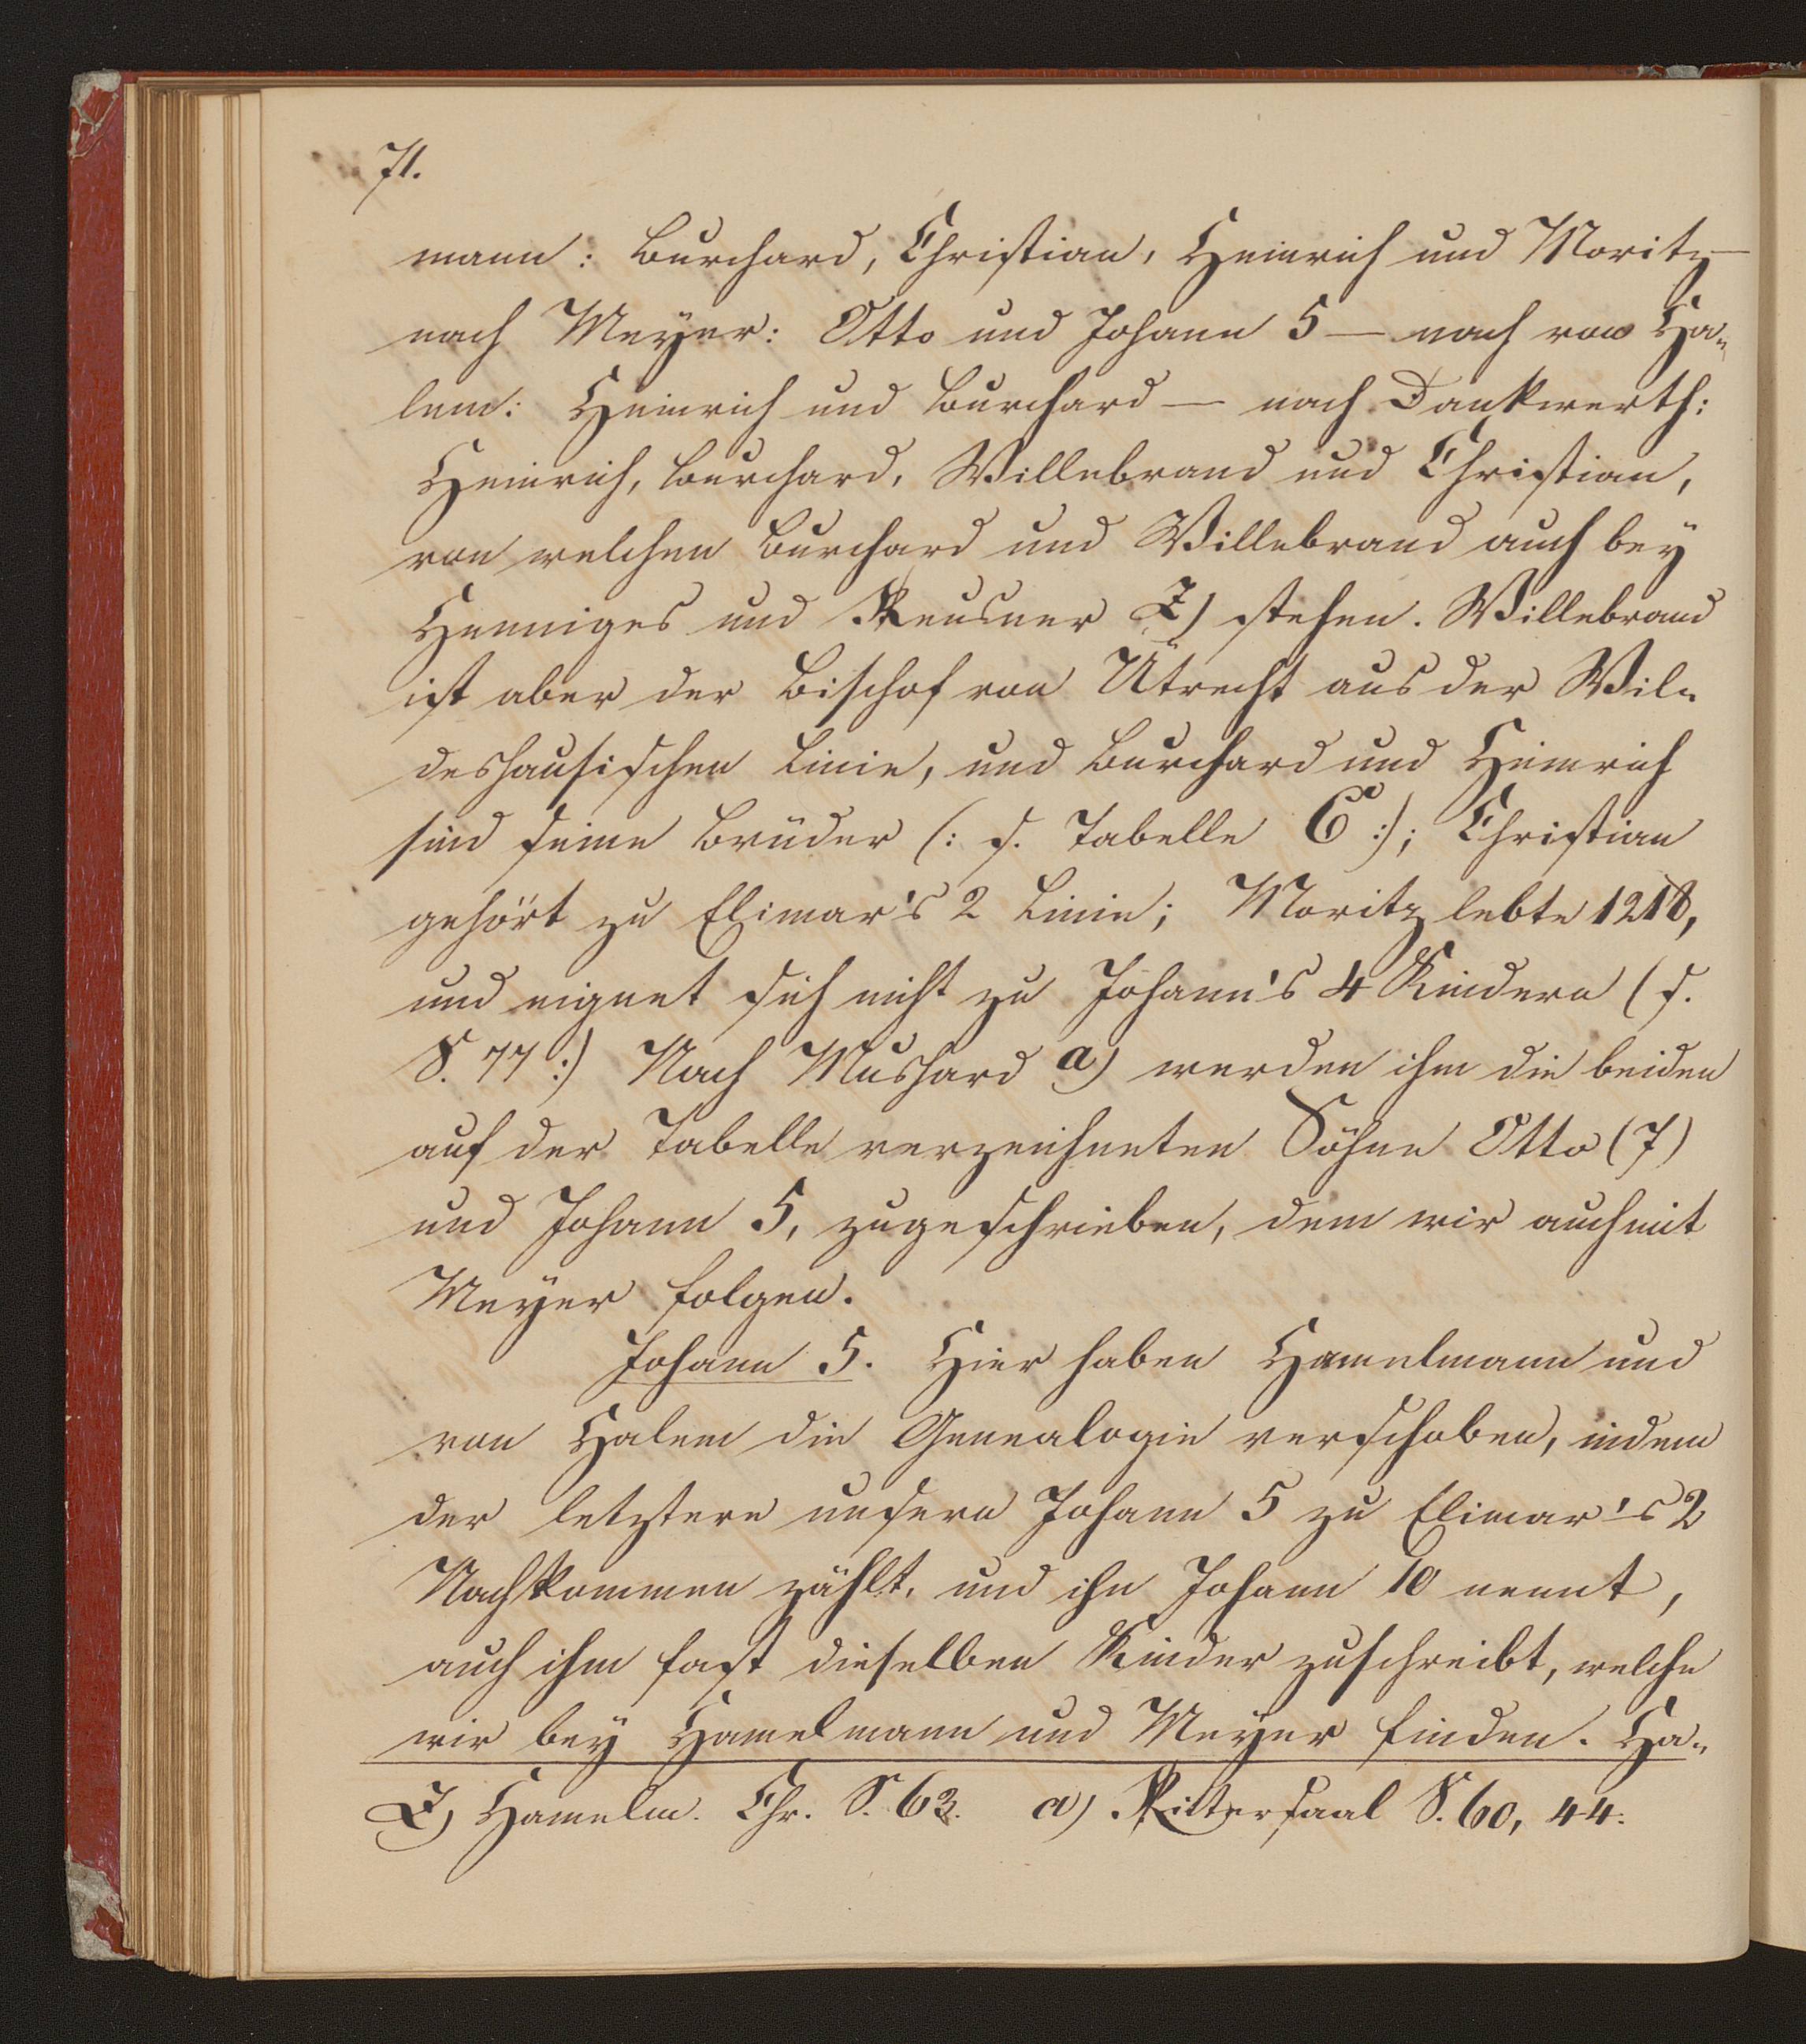 71.
mann: Burchard, Christian, Heinrich und Moritz —
nach Meÿer: Otto und Johann 5 — nach von Ha-
lem: Heinrich und Burchard — nach Dankwerth:
Heinrich, Burchard, Willebrand und Christian,
von welchen Burchard und Willebrand auch beÿ
Henniges und Reusner Z) stehen. Willebrand
ist aber der Bischof von Utrecht aus der Wil-
deshausischen Linie, und Burchard und Heinrich
sind seine Brüder (: s. Tabelle C :); Christian
gehört zu Elimar's 2 Linie; Moritz lebte 1218,
und eignet sich nicht zu Johann's 4 Kindern (s.
S. 77 :) Nach Mushard a) werden ihm die beiden
auf der Tabelle verzeichneten Söhne Otto (7)
und Johann 5, zugeschrieben, dem wir auch mit
Meÿer folgen.
Johann 5. Hier haben Hamelmann und
von Halem die Genealogie verschoben, indem
der letztere unsern Johann 5 zu Elimar's 2
Nachkommen zählt, und ihn Johann 10 nennt,
auch ihm fast dieselben Kinder zuschreibt, welche
wir beÿ Hamelmann und Meÿer finden. Ha-
Z) Hamelm. Chr. S. 63. a) Rittersaal S. 60, 44.